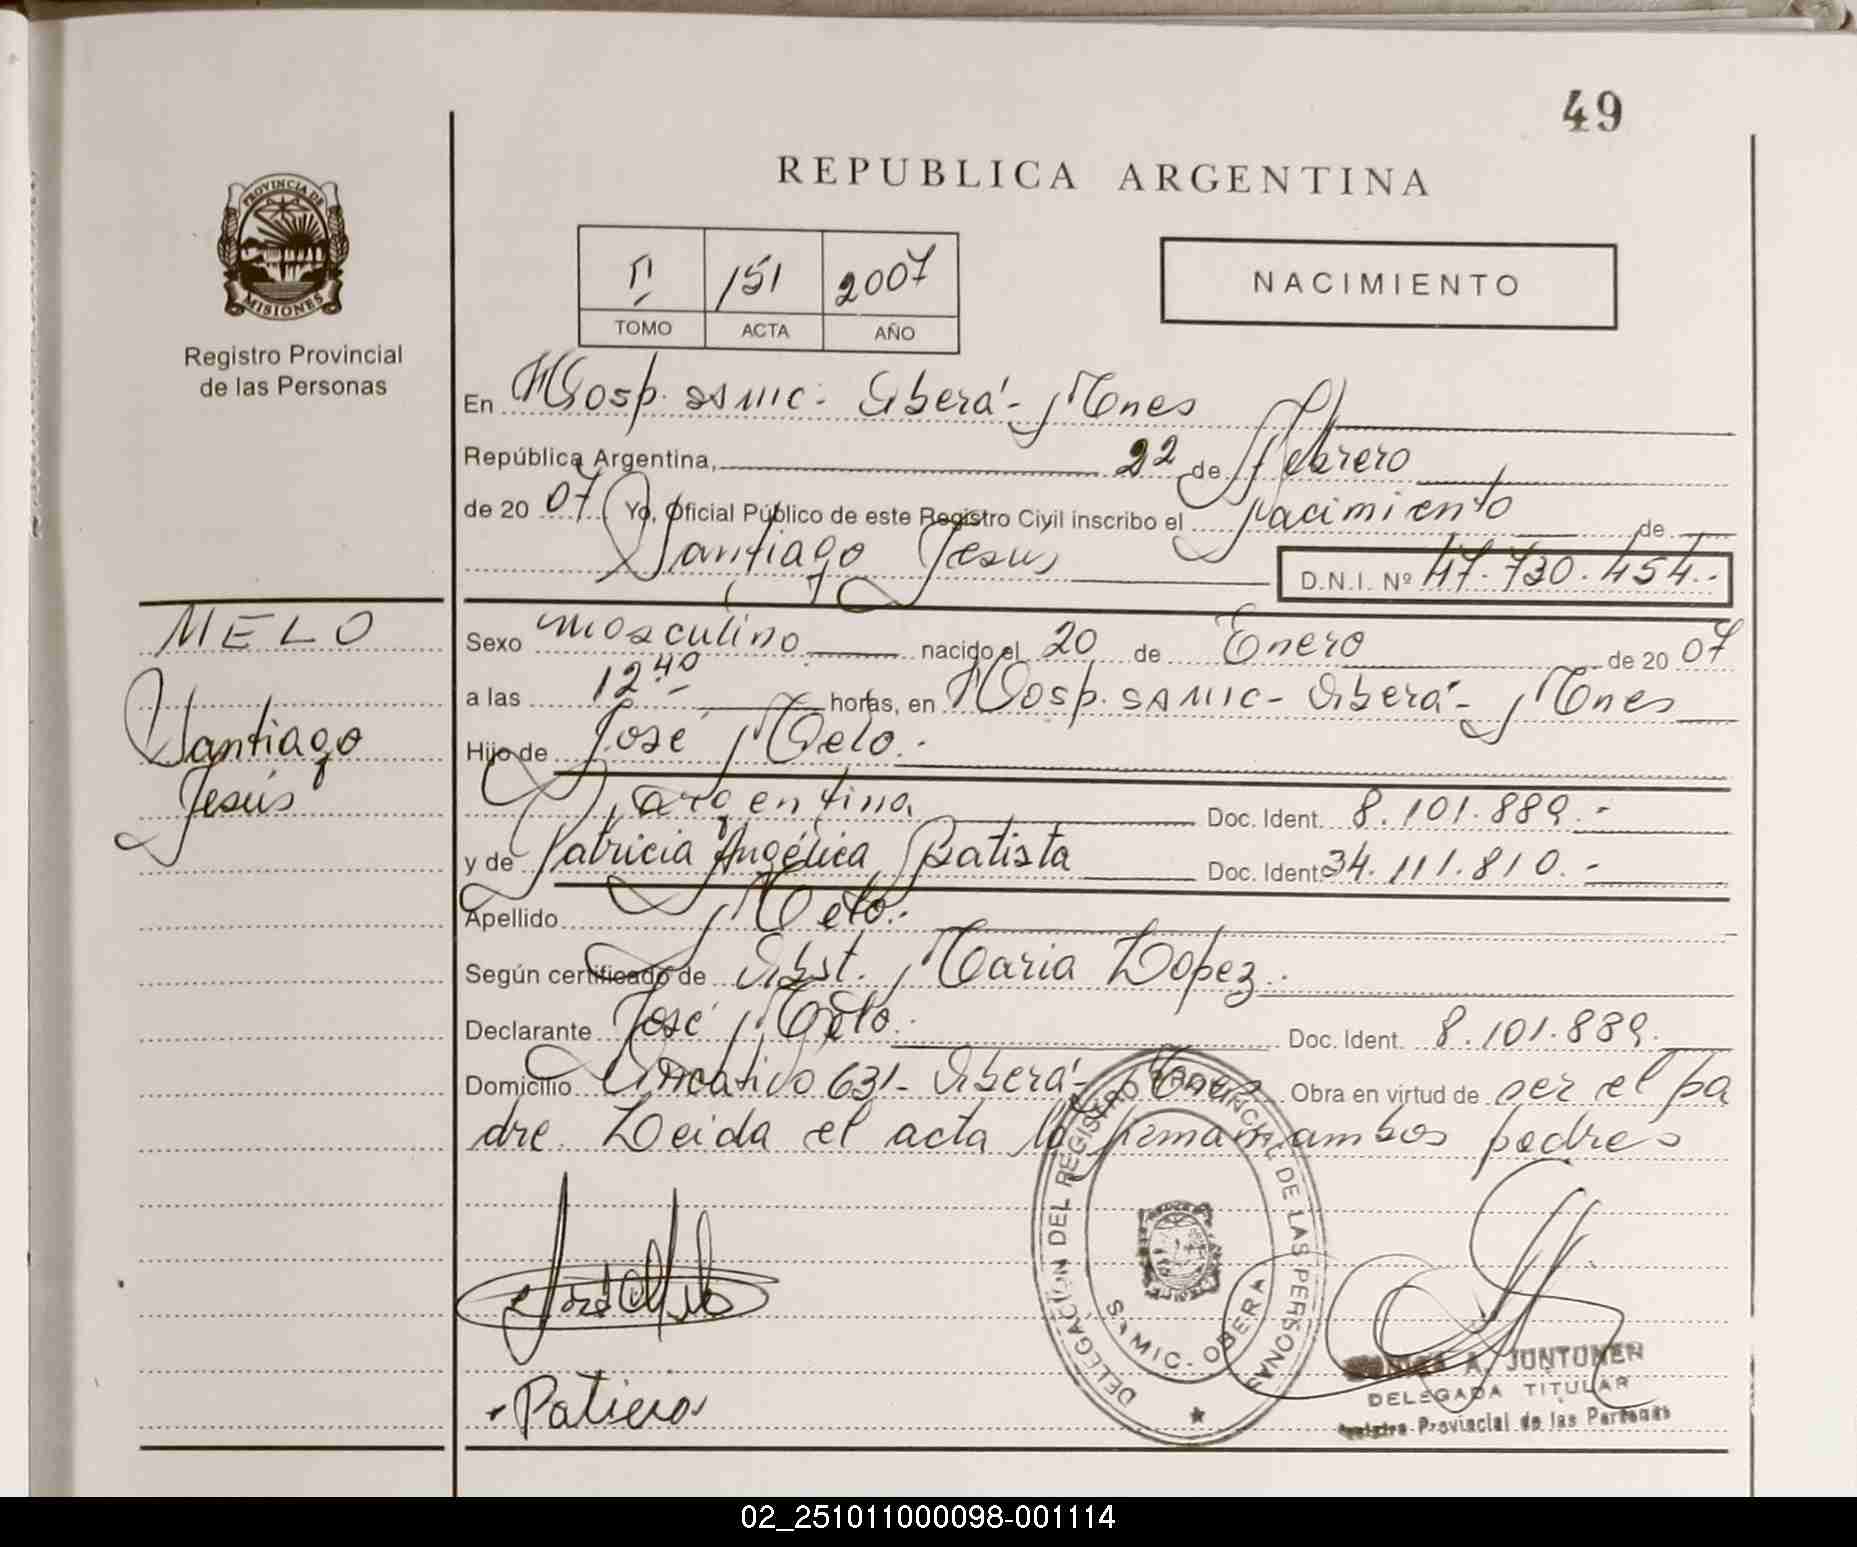 49
REPUBLICA ARGENTINA
PROVINCIA DE
MISIONES
Registro Provincial
de las Personas
II 151 2007
TOMO ACTA AÑO
NACIMIENTO
En Hosp. SAMIC - Oberá - Mnes
República Argentina, 22 de Febrero
de 20 07 Yo, Oficial Público de este Registro Civil inscribo el Nacimiento de
Santiago Jesus D.N.I. Nº 47.730.454.-
MELO
Santiago
Jesús
Sexo masculino nacido el 20 de Enero de 20 07
a las 12:40 horas, en Hosp. SAMIC - Oberá - Mnes
Hijo de José Melo.-
argentina Doc. Ident. 8.101.889.-
y de Patricia Angélica Batista Doc. Ident. 34.111.810.-
Apellido Melo.-
Según certificado de Obst. Maria Lopez.
Declarante José Melo.- Doc. Ident. 8.101.889.
Domicilio 631 - Oberá - Mnes Obra en virtud de ser el pa
dre. Leida el acta la firman ambos padres
José Melo
DELEGACIÓN DEL REGISTRO PROVINCIAL DE LAS PERSONAS
SAMIC - OBERA
A. JUNTUNEN
DELEGADA TITULAR
Registro Provincial de las Personas
02_251011000098-001114